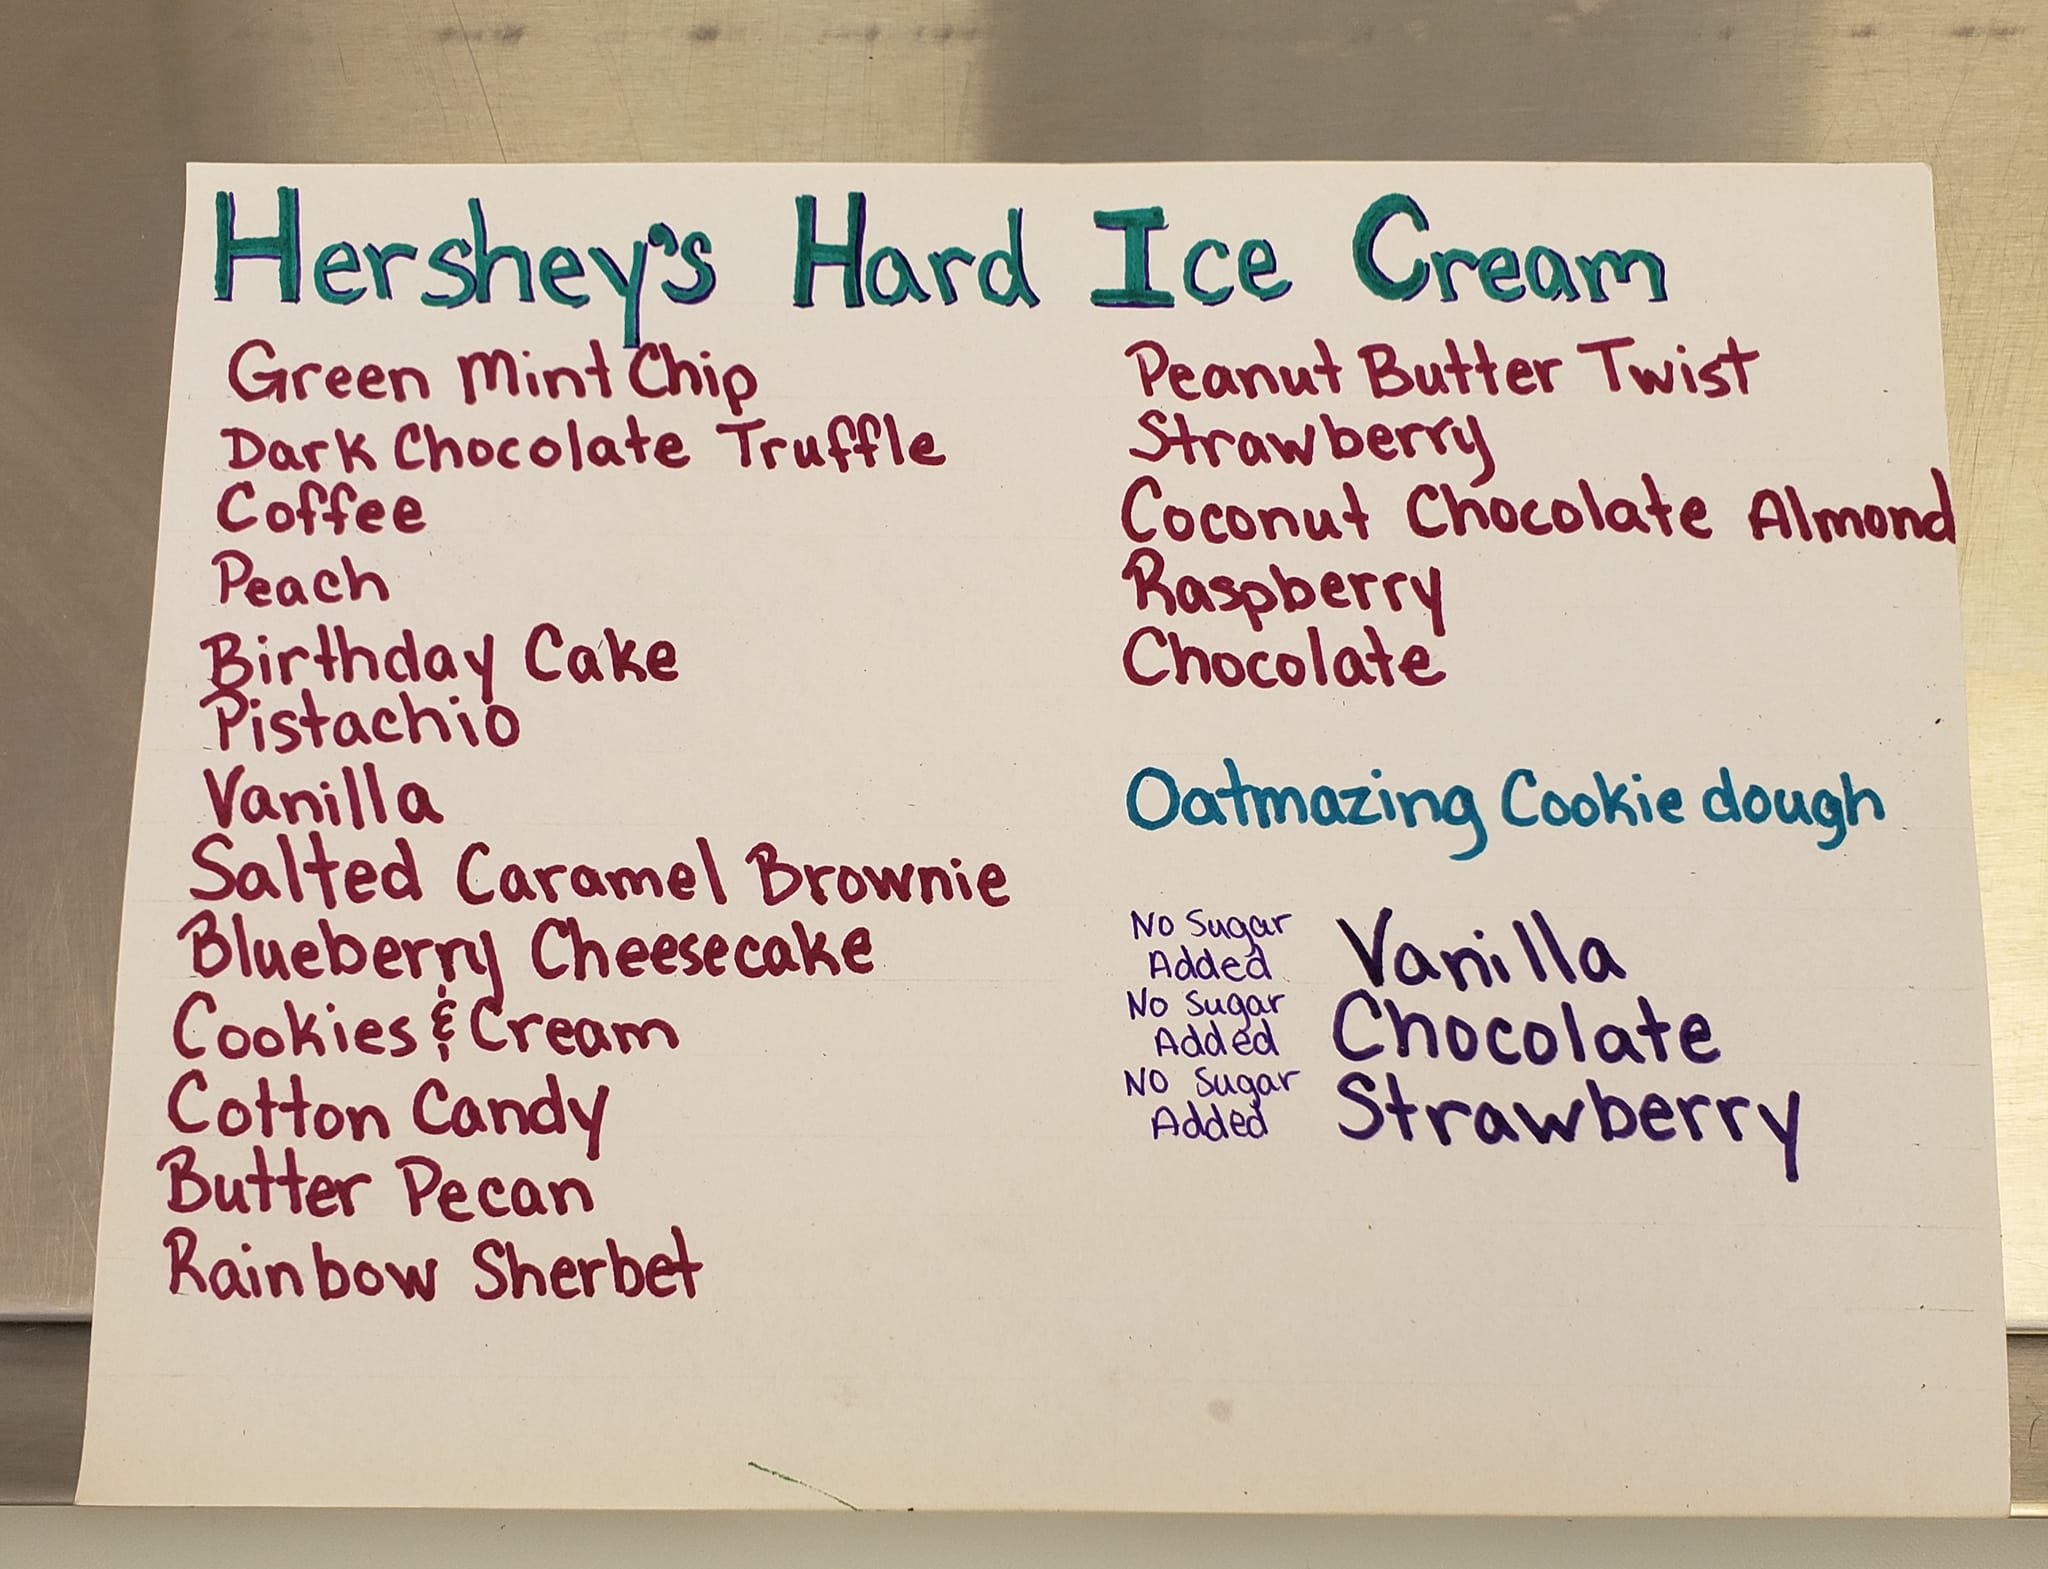 Hershey's Hard Ice Cream
Green Mint Chip
Dark Chocolate Truffle
Coffee
Peach
Birthday Cake
Pistachio
Vanilla
Salted Caramel Brownie
Blueberry Cheesecake
Cookies & Cream
Cotton Candy
Butter Pecan
Rainbow Sherbet
Peanut Butter Twist
Strawberry
Coconut Chocolate Almond
Raspberry
Chocolate
Oatmazing Cookie dough
No Sugar
Added Vanilla
No Sugar
Added Chocolate
No Sugar
Added Strawberry